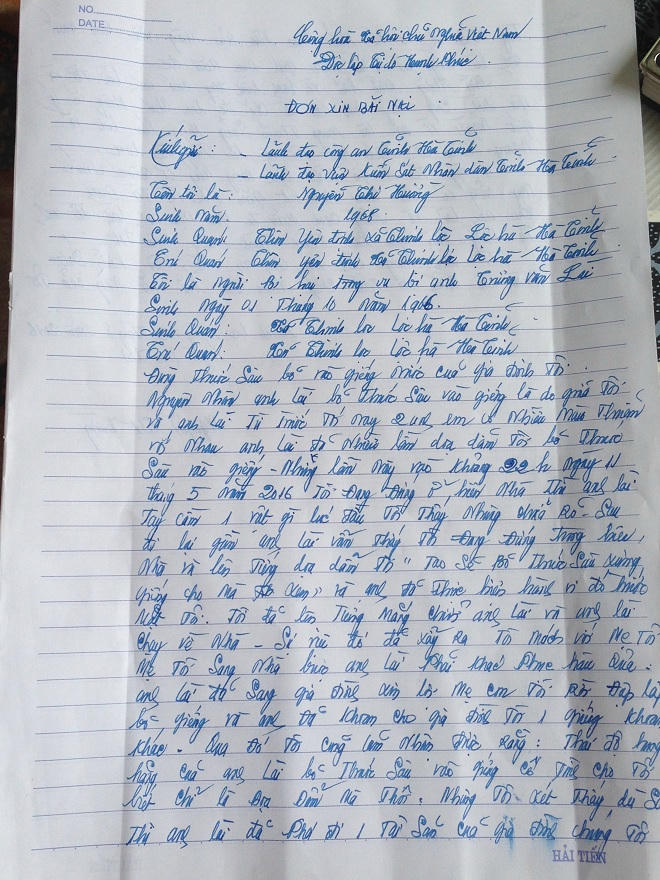 NO
DATE
Cộng hòa xã hội chủ nghĩa việt Nam
Độc lập Tự do Hạnh Phúc
ĐƠN XIN BÃI NẠI
Kính gửi: - Lãnh đạo công an Tỉnh Hà Tĩnh
- Lãnh đạo viện Kiểm Sát Nhân dân Tỉnh Hà Tĩnh
Tên tôi là: Nguyễn Thị Hường
Sinh năm: 1968
Sinh Quán: Thôn Yên định xã Thịnh lộc Lộc hà Hà Tĩnh
Trú Quán Thôn yên định xã Thịnh lộc Lộc hà Hà Tĩnh
Tôi là người bị hại trong vụ bị anh Trùng văn Lai
Sinh ngày 01 Tháng 10 năm 1966
Sinh Quán: Xã Thịnh lộc Lộc hà Hà Tĩnh
Trú Quán: Xã Thịnh lộc Lộc hà Hà Tĩnh
Dùng Thuốc Sâu bỏ vào giếng nước của gia đình Tôi.
Nguyên Nhân anh lai bỏ Thuốc Sâu vào giếng là do giữa Tôi
và anh lai Từ Trước Tới nay 2 anh em có Nhiều mâu Thuẫn
với Nhau anh lai đã Nhiều lần dọa dẫm Tôi bỏ Thuốc
Sâu vào giếng - Nhưng lần này vào khoảng 22h ngày 11
tháng 5 năm 2016 Tôi Đang Đứng ở hiên Nhà Thì anh lai
Tay cầm 1 vật gì lúc đầu Tôi Thấy Nhưng chưa Rõ Sau
đó lại gần anh lai vẫn Thấy Tôi Đang Đứng trong hiên
Nhà và lên Tiếng dọa dẫm Tôi " Tao Sẽ Bỏ Thuốc Sâu xuống
giếng cho mà xem" và anh đã Thực hiện hành vi đó trước
mặt Tôi. Tôi đã lên Tiếng mắng chửi anh lai và anh lai
chạy về Nhà - Sự việc đó đã xẩy ra Tôi mách với Mẹ Tôi
Mẹ Tôi Sang Nhà bảo anh lai Phải khắc Phục hậu Quả.
anh lai đã Sang gia đình xin lỗi Mẹ con Tôi Rồi Đắp lấp
bỏ giếng và anh đã khoan cho gia đình Tôi 1 giếng khoan
khác. Qua đó Tôi cũng làm Nhận Được Rằng: Thái độ hung
hăng của anh lai bỏ Thuốc Sâu vào giếng cố Tình cho Tôi
biết chỉ là Mà Thôi. Nhưng Tôi xét Thấy dù Sao
Thì anh lai đã Phá đi 1 Tài Sản của gia đình chúng Tôi
HẢI TIẾN